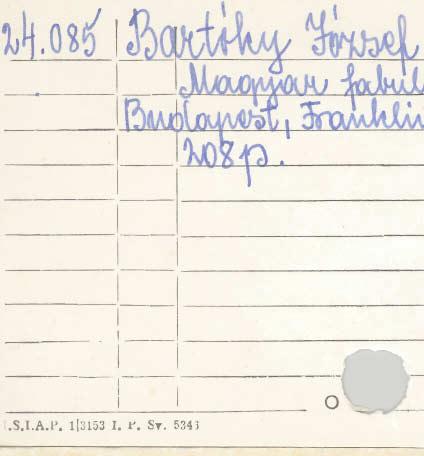 24.085 Bartóky József
Magyar fabul
Budapest, Franklin
208 p.
I.S.I.A.P. 1|3153 I. P. Sv. 5343